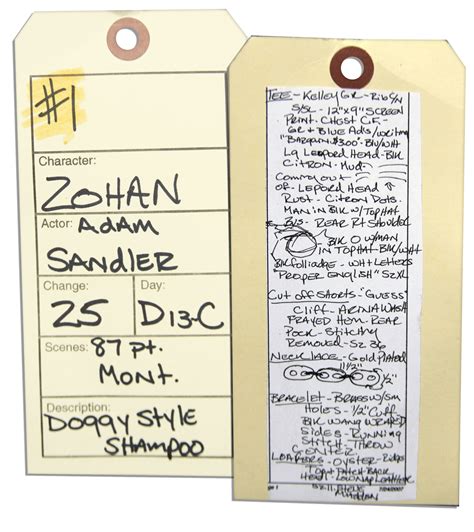 #1
Character:
ZOHAN
Actor: Adam
SANDLER
Change:
Day:
25
D13-C
Scenes: 87 pt.
Mont.
Description:
Doggy Style
Shampoo
TEE - Kelley GR - Rib S/N
S/SL - 12"x9" SCREEN
PRINT - CHEST C.F. -
GR + BLUE Ads/writing
"BARGAIN $300" - BLK/WHT
Lg LEPORD HEAD - BLK
CITRON - Mud -
Coming out of
OF - LEPORD HEAD
RUST - CITRON Dots.
MAN IN BLK W/TOP HAT
B/S - REAR Rt Shoulder
BLK O W/MAN
IN TOPHAT BLK/WHT
BLK - WHT Letters
"PROPER ENGLISH" SZ XL
Cut off Shorts - "GUESS"
Cliff - WASH
FRAYED HEM - REAR
POCK - Stitching
REMOVED - SZ 36
NECKLACE - Gold Plated
11/2"
1/2"
BRACELET - BRASS W/SM
Holes - 1/2" Cuff
BLK WRAPPED
SIDES - RUNNING
STITCH - THROW
CENTER
LOAFERS - OYSTER -
TOP + PITCH BACK
HEEL -
SZ 11 STEVE
MADDEN